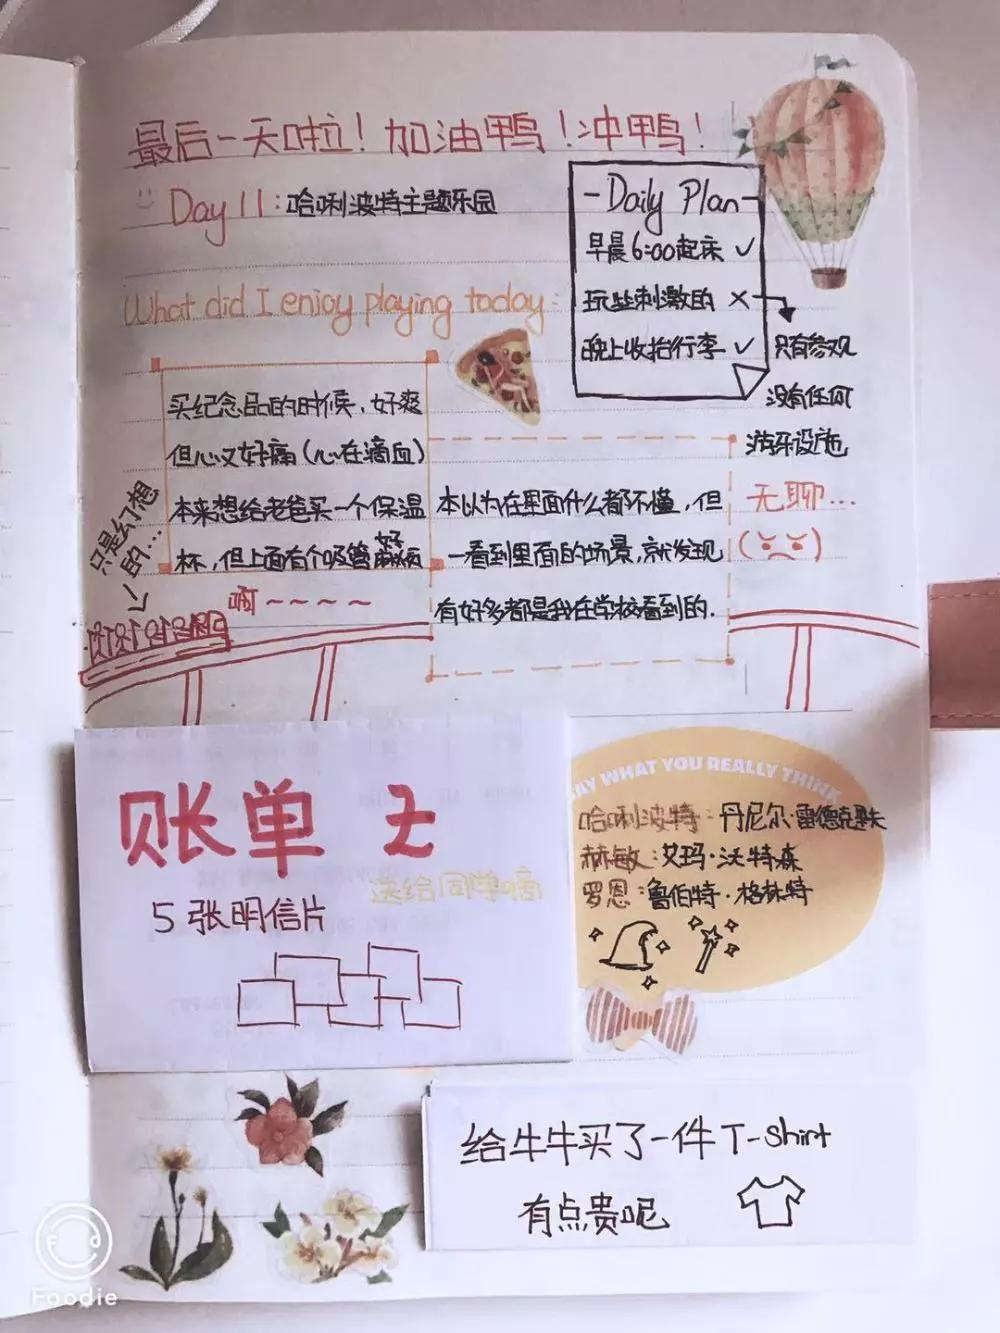 最后一天啦！加油鸭！冲鸭！
Day 11：哈唎波特主题乐园
-Daily Plan-
早晨6:00起床 ✓
玩些刺激的 ×
晚上收拾行李 ✓
只有参观
没有任何
游乐设施
无聊...
What did I enjoy playing today:
买纪念品的时候，好爽
但心又好痛（心在滴血）
本来想给老爸买一个保温
杯，但上面有个吸管好麻烦
本以为在里面什么都不懂，但
一看到里面的场景，就发现
有好多都是我在学校看到的.
只是幻想
的...
啊~~~~
账单
送给同学嘀
5张明信片
AY WHAT YOU REALLY THINK
哈唎波特：丹尼尔·雷德克里夫
赫敏：艾玛·沃特森
罗恩：鲁伯特·格林特
给牛牛买了一件T-shirt
有点贵呢
Foodie